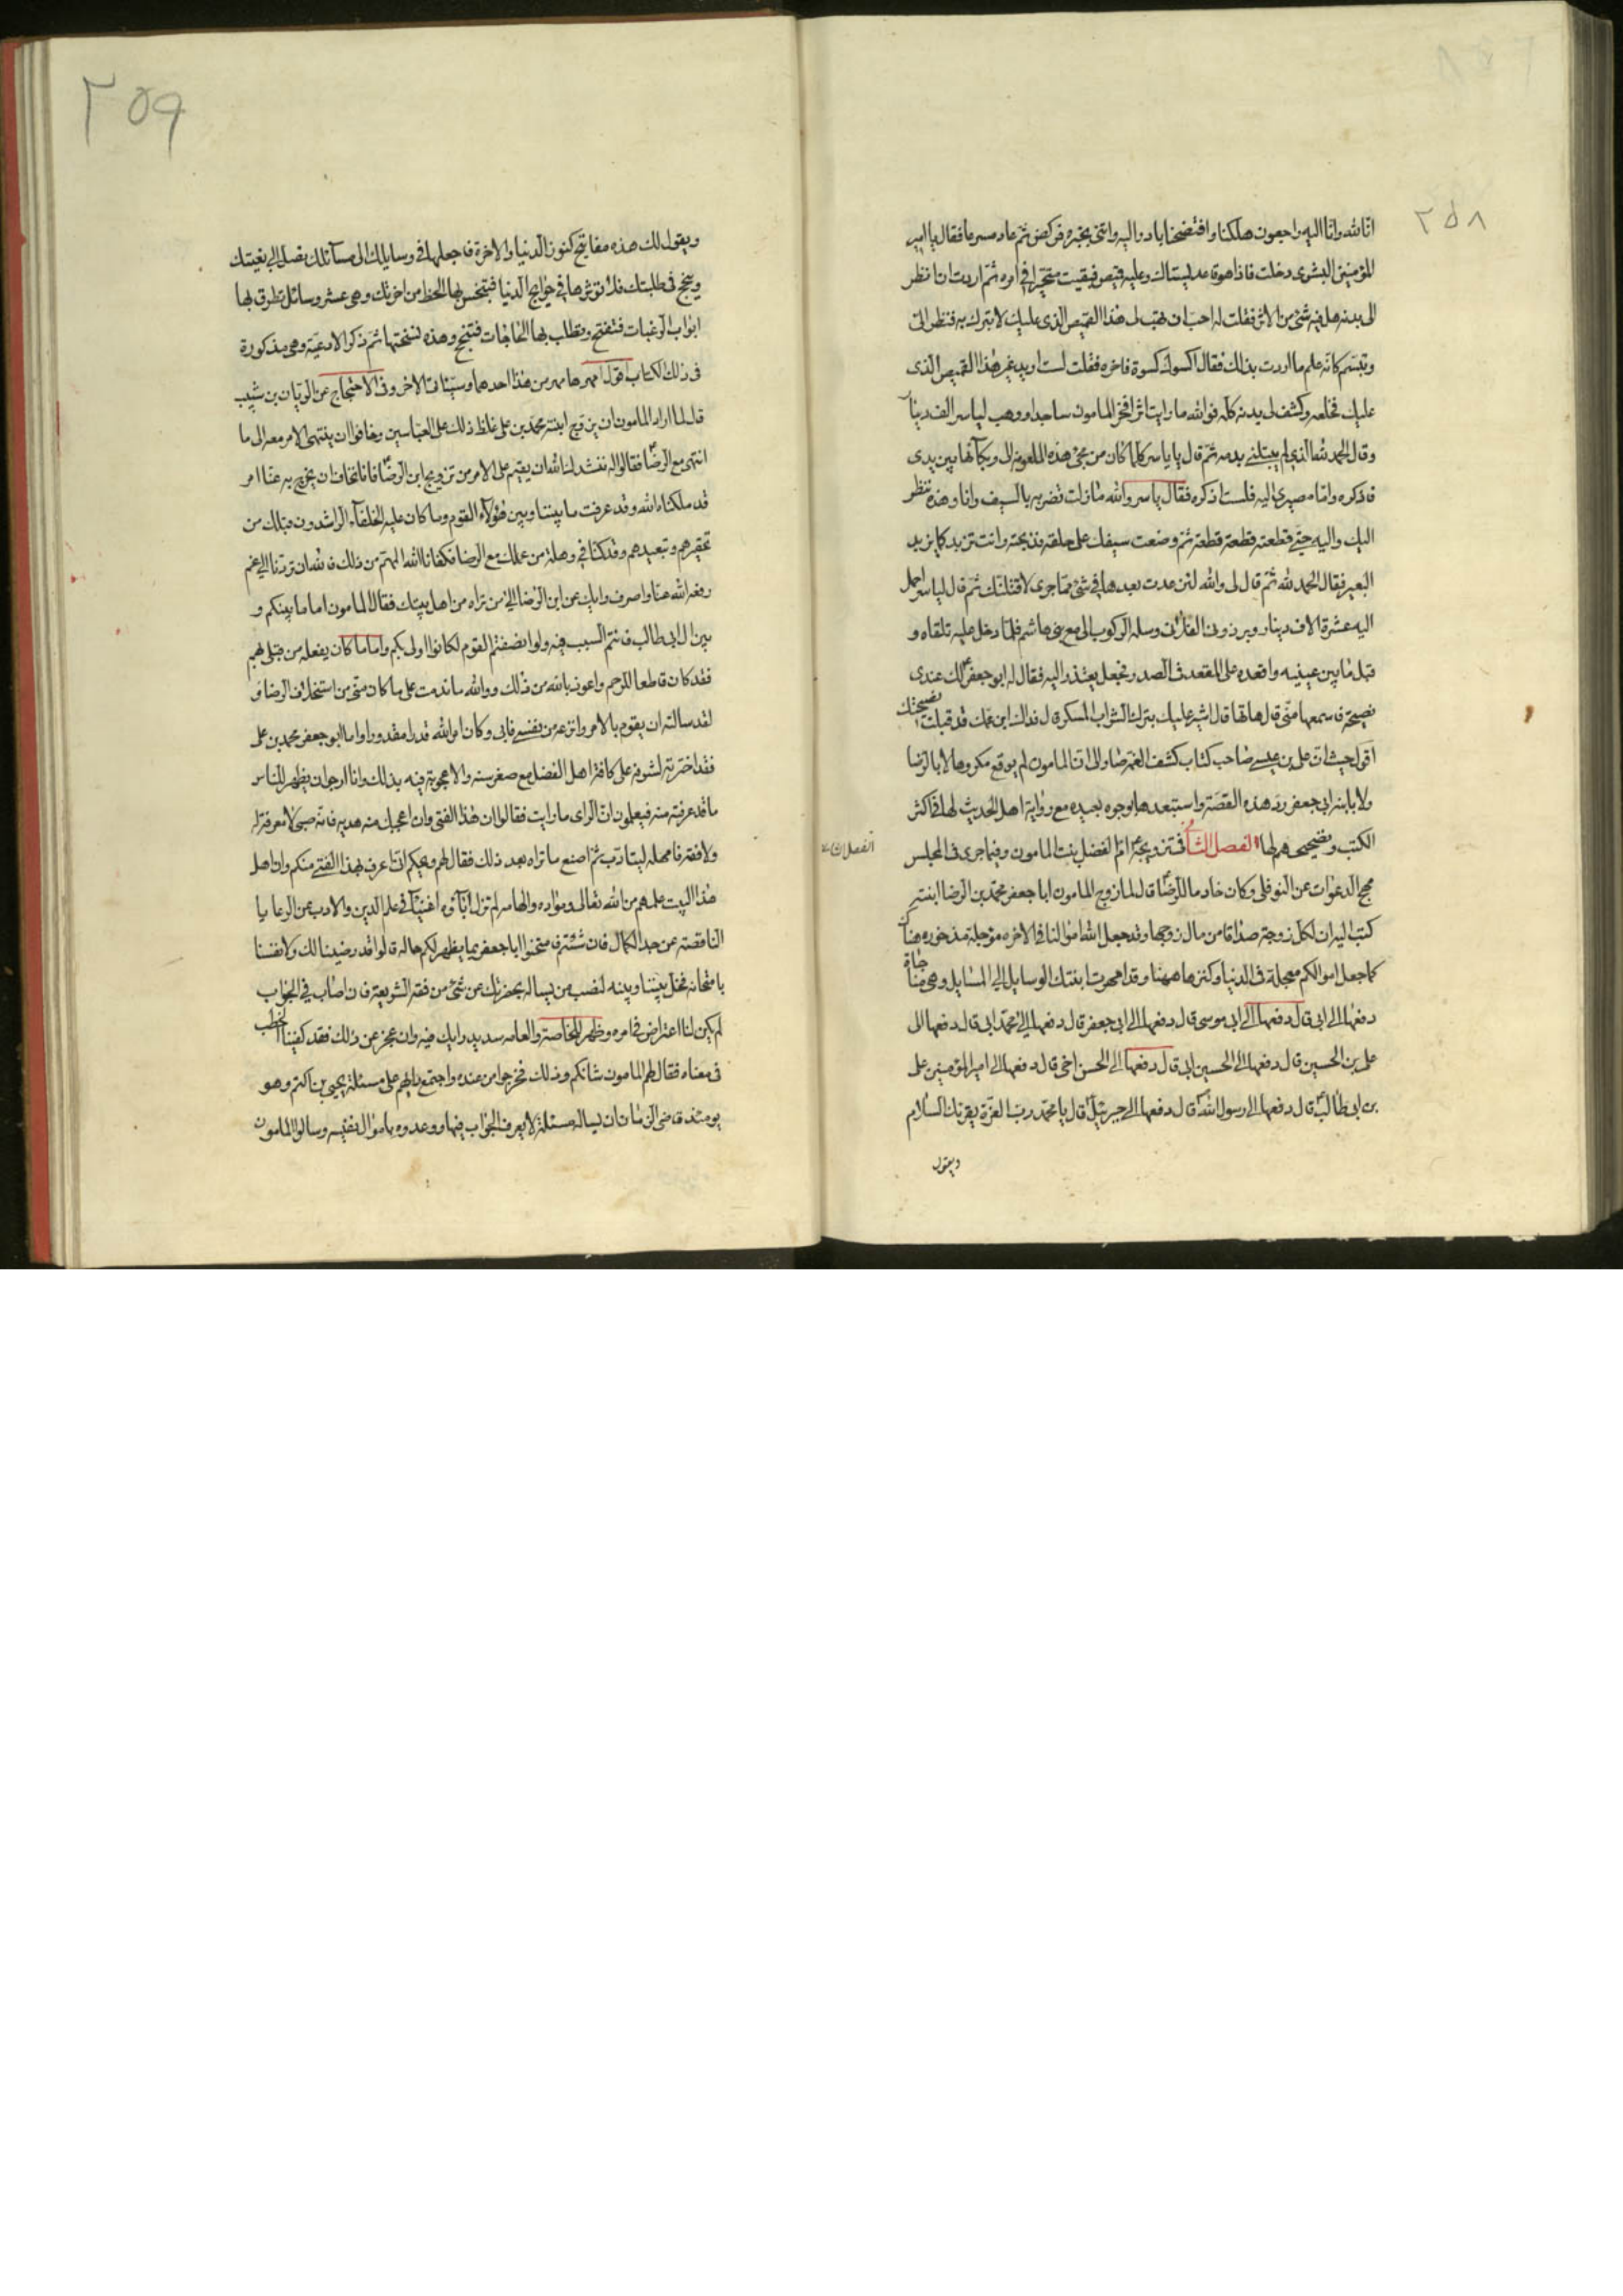 ٢٥٨
انا لله وانا اليه راجعون هلكنا وافتضحنا بادر اليه وائتنى بخبره فركض ثم عاد مسرعا فقال يا امير
المؤمنين البشرى دخلت فاذا هو قاعد يستاك وعليه قميص فبقيت متحيرا فى امره ثم اردت ان انظر
الى بدنه هل فيه شئ من الاثر فقلت له احب ان تهب لى هذا القميص الذى عليك لاتبرك به فنظر الى
وتبسم كانه علم ما اردت بذلك فقال اكسوك كسوة فاخره فقلت لست اريد غير هذا القميص الذى
عليك فخلعه وكشف لى بدنه كله فوالله ما رايت اثرا فخر المامون ساجدا ووهب لياسر الف دينار
وقال الحمد لله الذى لم يبتلنى بدمه ثم قال يا ياسر كلما كان من مجئ هذه الملعونه الى وبكائها بين يدى
فاذكره واما مصيرى اليه فلست اذكره فقال ياسر والله مازلت تضربه بالسيف وانا وهذه ننظر
اليك واليه حتى قطعته قطعة قطعة ثم وضعت سيفك على حلقه فذبحته وانت تزبد كما يزبد
البعير فقال الحمد لله ثم قال لى والله لئن عدت بعدها فى شئ مما جرى لاقتلنك ثم قال لياسر احمل
اليه عشرة الاف دينار وبرذونى الفلانى وسله الركوب الى مع بنى هاشم فلما دخل عليه تلقاه و
قبل ما بين عينيه واقعده على المقعد فى الصدر فجعل يعتذر اليه فقال له ابو جعفر لك عندى
نصيحة فاسمعها منى قال هاتها قال اشير عليك بترك الشراب المسكر قال فداك ابن عمك قد قبلت نصيحتك
اقول حيث ان على بن عيسى صاحب كتاب كشف الغمه رضا والى ان المامون لم يوقع مكروها لا بالرضا
ولا بابنه ابى جعفر رد هذه القصة واستبعدها بوجوه بعيده مع رواية اهل الحديث لها فى اكثر
الكتب وتصحيحهم لها الفصل الثا فى تزويجه ام الفضل بنت المامون وفيما جرى فى المجلس
الفصل الثا
مهج الدعوات عن النوفلى وكان خادما للرضا قال لما زوج المامون ابا جعفر محمد بن الرضا ابنته
كتب اليه ان لكل زوجة صداقا من مال زوجها وقد جعل الله اموالنا فى الاخره مؤجلة مذخورة هناك
كما جعل اموالكم معجلة فى الدنيا وكنزها ههنا وقد امهرت ابنتك الوسايل الى المسايل وهى مناجاة
دفعها الى ابى قال دفعها الى ابى موسى قال دفعها الى ابى جعفر قال دفعها الى محمد ابى قال دفعها الى
على بن الحسين قال دفعها الى الحسين ابى قال دفعها الى الحسن اخى قال دفعها الى امير المؤمنين على
بن ابى طالب قال دفعها الى رسول الله قال دفعها الى جبرئيل قال يا محمد رب العزة يقرئك السلام
ويقول
٢٥٩
ويقول لك هذه مفاتيح كنوز الدنيا والاخرة فاجعلها فى وسايلك الى مسائلك تصل الى بغيتك
وينجح فى طلبتك فلا تؤثرها فى حوايج الدنيا فتبخس بها الحظ من اخرتك وهى عشر وسائل تطرق بها
ابواب الرغبات فتفتح وتطلب بها الحاجات فتنجح وهذه نسختها ثم ذكر الادعية وهى مذكورة
فى ذلك الكتاب اقول امهرها مهرين هذا احدهما وسيئاتى الاخر وفى الاحتجاج عن الريان بن شبيب
قال لما اراد المامون ان يزوج ابنته محمد بن على غلظ ذلك على العباسيين وخافوا ان ينتهى الامر معه الى ما
انتهى مع الرضا فقالوا له ننشدك الله ان يقيم على الامر من تزويج ابن الرضا فانا نخاف ان يخرج به عنا امر
قد ملكناه الله وقد عرفت ما بيننا وبين هؤلاء القوم وما كان عليه الخلفاء الراشدون قبلك من
تحقيرهم وتبعيدهم وقد كنا فى وهلة من عملك مع الرضا فكفانا الله المهم من ذلك فالله ان تردنا الى غم
رفعه الله عنا واصرف رايك عن ابن الرضا الى من تراه من اهل بيتك فقال المامون اما ما بينكم و
بين ال ابى طالب فانتم السبب فيه ولو انصفتم القوم لكانوا اولى بكم واما ما كان يفعله من قبلى بهم
فقد كان قاطعا للرحم واعوذ بالله من ذلك ووالله ما ندمت على ما كان منى من استخلاف الرضا و
لقد سالته ان يقوم بالامر وانزعه من نفسى فابى وكان امر الله قدرا مقدورا واما ابو جعفر محمد بن على
فقد اخترته لشرفه على كافة اهل الفضل مع صغر سنه والاعجوبة فيه بذلك وانا ارجو ان يظهر للناس
ما قد عرفته منه فيعلمون ان الراى ما رايت فقالوا ان هذا الفتى وان اعجبك منه هديه فانه صبى لا معرفة له
ولا فقه فامهله ليتادب ثم اصنع ما تراه بعد ذلك فقال لهم ويحكم انى اعرف بهذا الفتى منكم وان اهل
هذا البيت علمهم من الله تعالى ومواده والهامه لم تزل اباؤه اغنياء فى علم الدين والادب عن الرعايا
الناقصة عن حد الكمال فان شئتم فامتحنوا ابا جعفر بما يظهر لكم حاله قالوا قد رضينا لك ولانفسنا
بامتحانه فخل بيننا وبينه لنصب من يساله بحضرتك عن شئ من فقه الشريعة فان اصاب فى الجواب
لم يكن لنا اعتراض فى امره وظهر للخاصة والعامه سديد رايك فيه وان عجز عن ذلك فقد كفينا الخطب
فى معناه فقال لهم المامون شانكم وذلك فخرجوا من عنده واجتمع رايهم على مسئلة يحيى بن اكثم وهو
يومئذ قاضى الزمان ان يساله مسئلة لا يعرف الجواب فيها ووعدوه باموال نفيسه وسالوا المامون